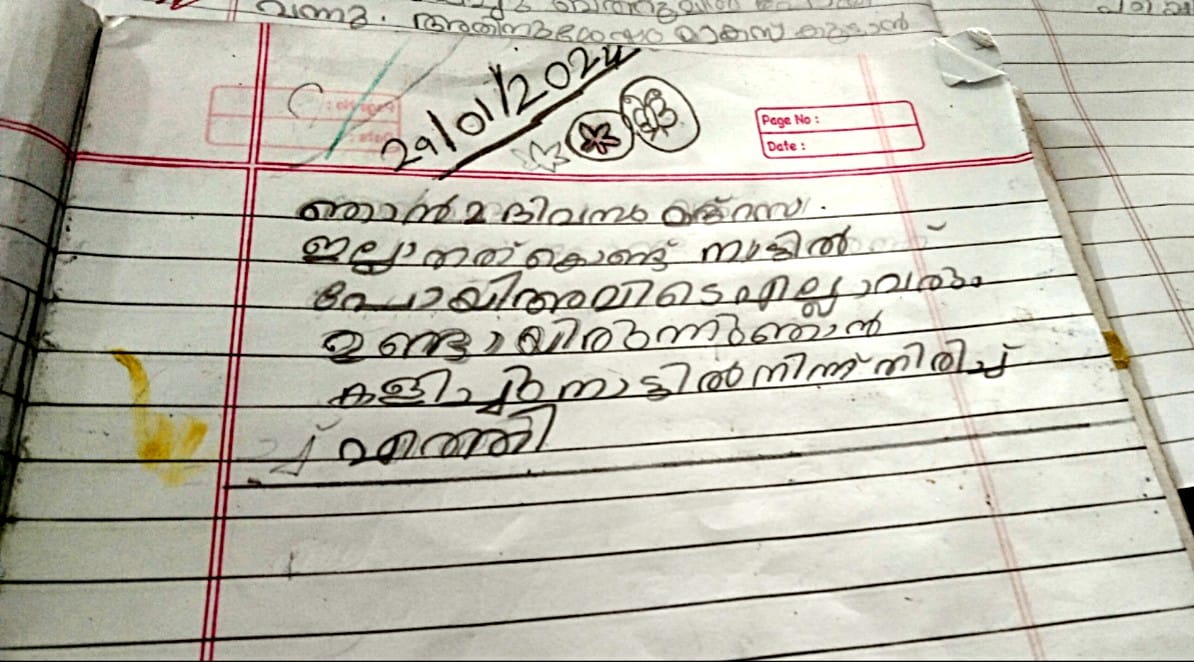 വന്നു.
29/01/2024
Page No :
Date :
ഞാൻ 2 ദിവസം മദ്റസ
ഇല്ലാത്തത് കൊണ്ട് നാട്ടിൽ
പോയി അവിടെ എല്ലാവരും
ഉണ്ടായിരുന്നു ഞാൻ
കളിച്ചു നാട്ടിൽ നിന്ന് തിരിച്ച്
എത്തി